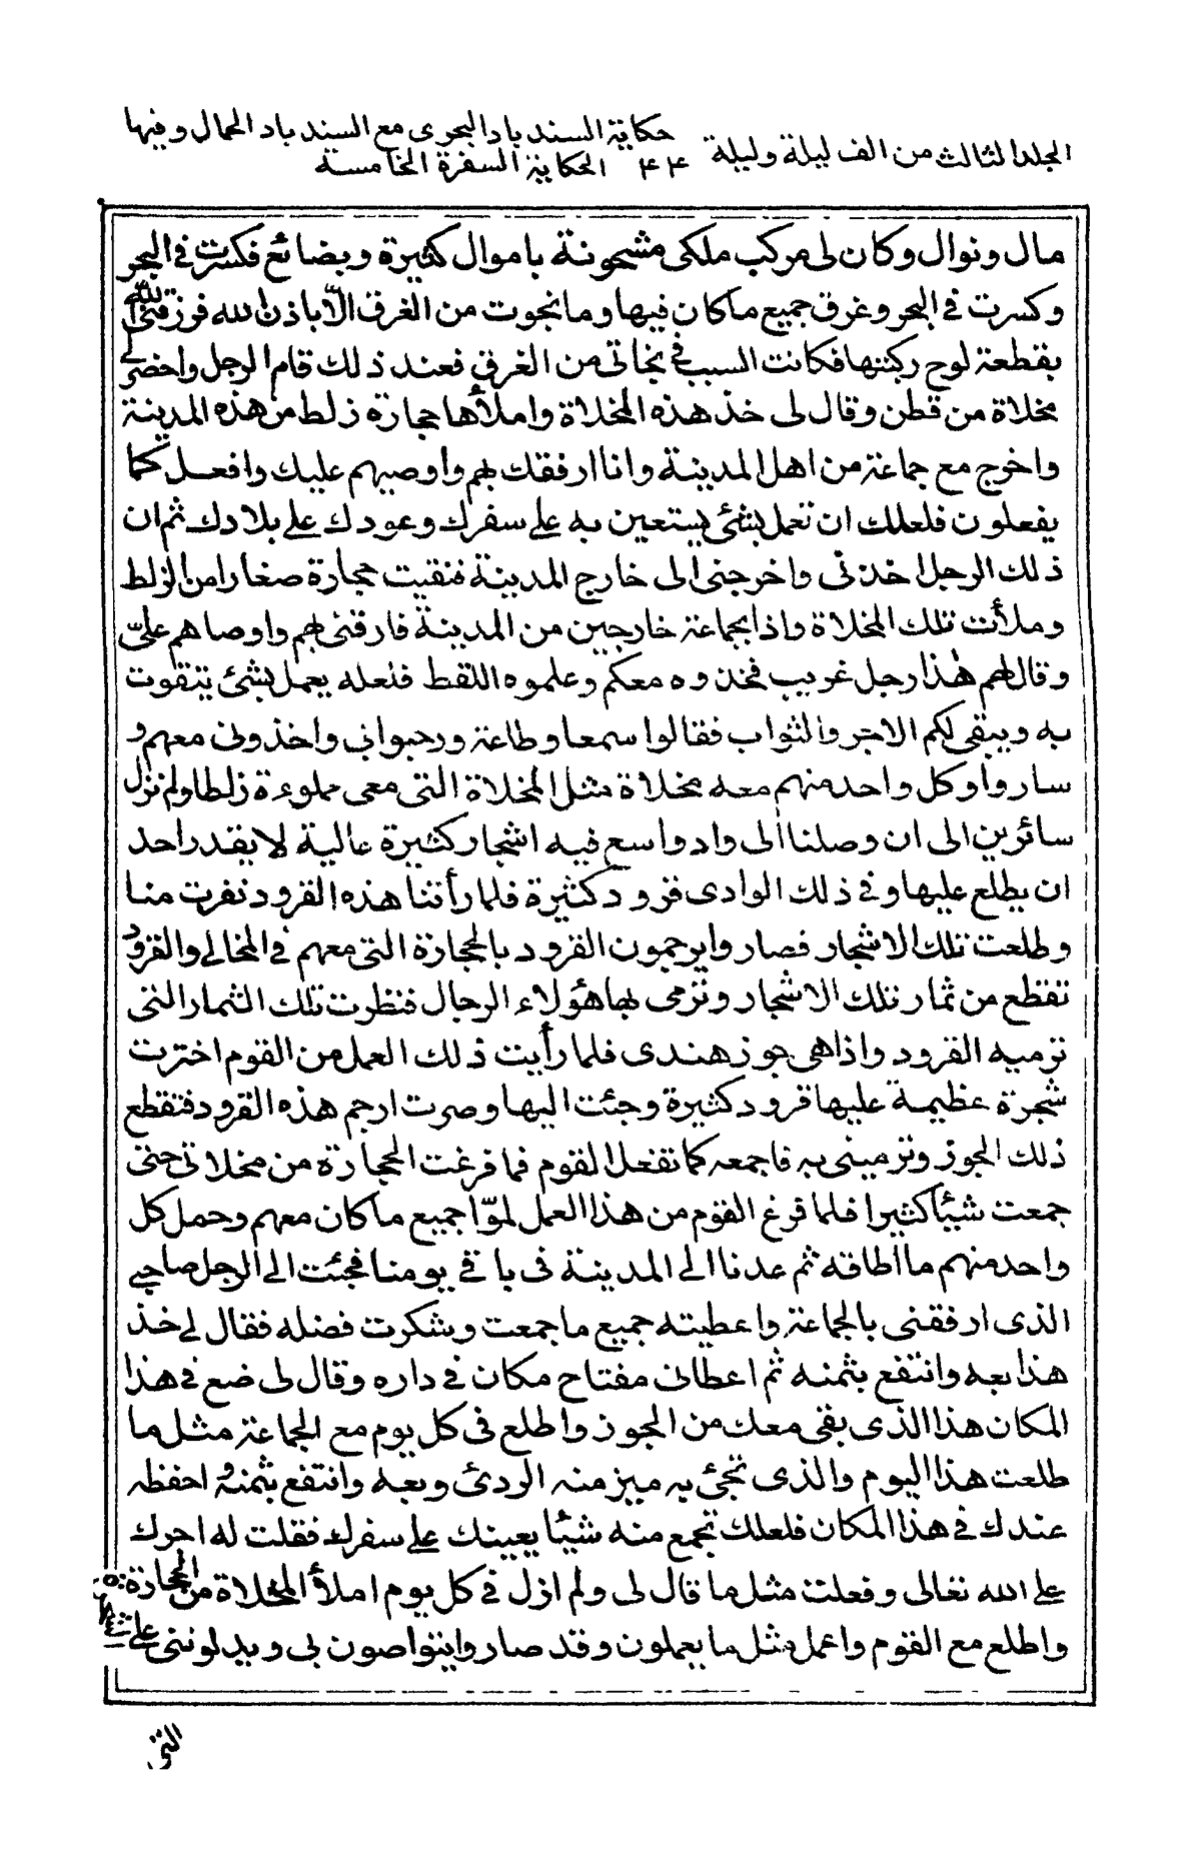 المجلد الثالث من الف ليلة وليلة ٤٤ حكاية السندباد البحرى مع السندباد الحمال وفيها
الحكاية السفرة الخامسة
مال ونوال وكان لى مركب ملكى مشحونة باموال كثيرة وبضائع فكسرت فى البحر
وكسرت فى البحر وغرق جميع ماكان فيها وما نجوت من الغرق الّا باذن الله فرزقنى الله
بقطعة لوح ركبتها فكانت السبب فى نجاتى من الغرق فعند ذلك قام الرجل واحضر لى
مخلاة من قطن وقال لى خذ هذه المخلاة واملأها حجارة زلط من هذه المدينة
واخرج مع جماعة من اهل المدينة وانا ارفقك بهم واوصيهم عليك وافعل كما
يفعلون فلعلك ان تعمل بشئ يستعين به على سفرك وعودك على بلادك ثم ان
ذلك الرجل اخذنى واخرجنى الى خارج المدينة فنقيت حجارة صغارا من الزلط
وملأت تلك المخلاة واذا بجماعة خارجين من المدينة فارفقنى بهم واوصاهم علىّ
وقال لهم هذا رجل غريب فخذوه معكم وعلموه اللقط فلعله يعمل بشئ يتقوت
به ويبقى لكم الاجر والثواب فقالوا سمعا وطاعة ورحبوا بى واخذونى معهم و
ساروا وكل واحد منهم معه مخلاة مثل المخلاة التى معى مملوءة زلطا ولم نزل
سائرين الى ان وصلنا الى واد واسع فيه اشجار كثيرة عالية لا يقدر احد
ان يطلع عليها وفى ذلك الوادى قرود كثيرة فلما رأتنا هذه القرود نفرت منا
وطلعت تلك الاشجار فصاروا يرجمون القرود بالحجارة التى معهم فى المخالى والقرود
تقطع من ثمار تلك الاشجار وترمى بها هؤلاء الرجال فنظرت تلك الثمار التى
ترميه القرود واذا هى جوز هندى فلما رأيت ذلك العمل من القوم اخترت
شجرة عظيمة عليها قرود كثيرة وجئت اليها وصرت ارجم هذه القرود فتقطع
ذلك الجوز وترمينى به فاجمعه كما تفعل القوم فما فرغت الحجارة من مخلاتى حتى
جمعت شيئا كثيرا فلما فرغ القوم من هذا العمل لموّا جميع ماكان معهم وحمل كل
واحد منهم ما اطاقه ثم عدنا الى المدينة فى باقى يومنا فجئت الى الرجل صاحبى
الذى ارفقنى بالجماعة واعطيته جميع ما جمعت وشكرت فضله فقال لى خذ
هذا بعه وانتفع بثمنه ثم اعطانى مفتاح مكان فى داره وقال لى ضع فى هذا
المكان هذا الذى بقى معك من الجوز واطلع فى كل يوم مع الجماعة مثل ما
طلعت هذا اليوم والذى تجئ به ميز منه الردئ وبعه وانتفع بثمنه واحفظه
عندك فى هذا المكان فلعلك تجمع منه شيئا يعينك على سفرك فقلت له اجرك
على الله تعالى وفعلت مثل ما قال لى ولم ازل فى كل يوم املأ المخلاة من الحجارة
واطلع مع القوم واعمل مثل ما يعملون وقد صاروا يتواصون بى ويدلوننى على
التى